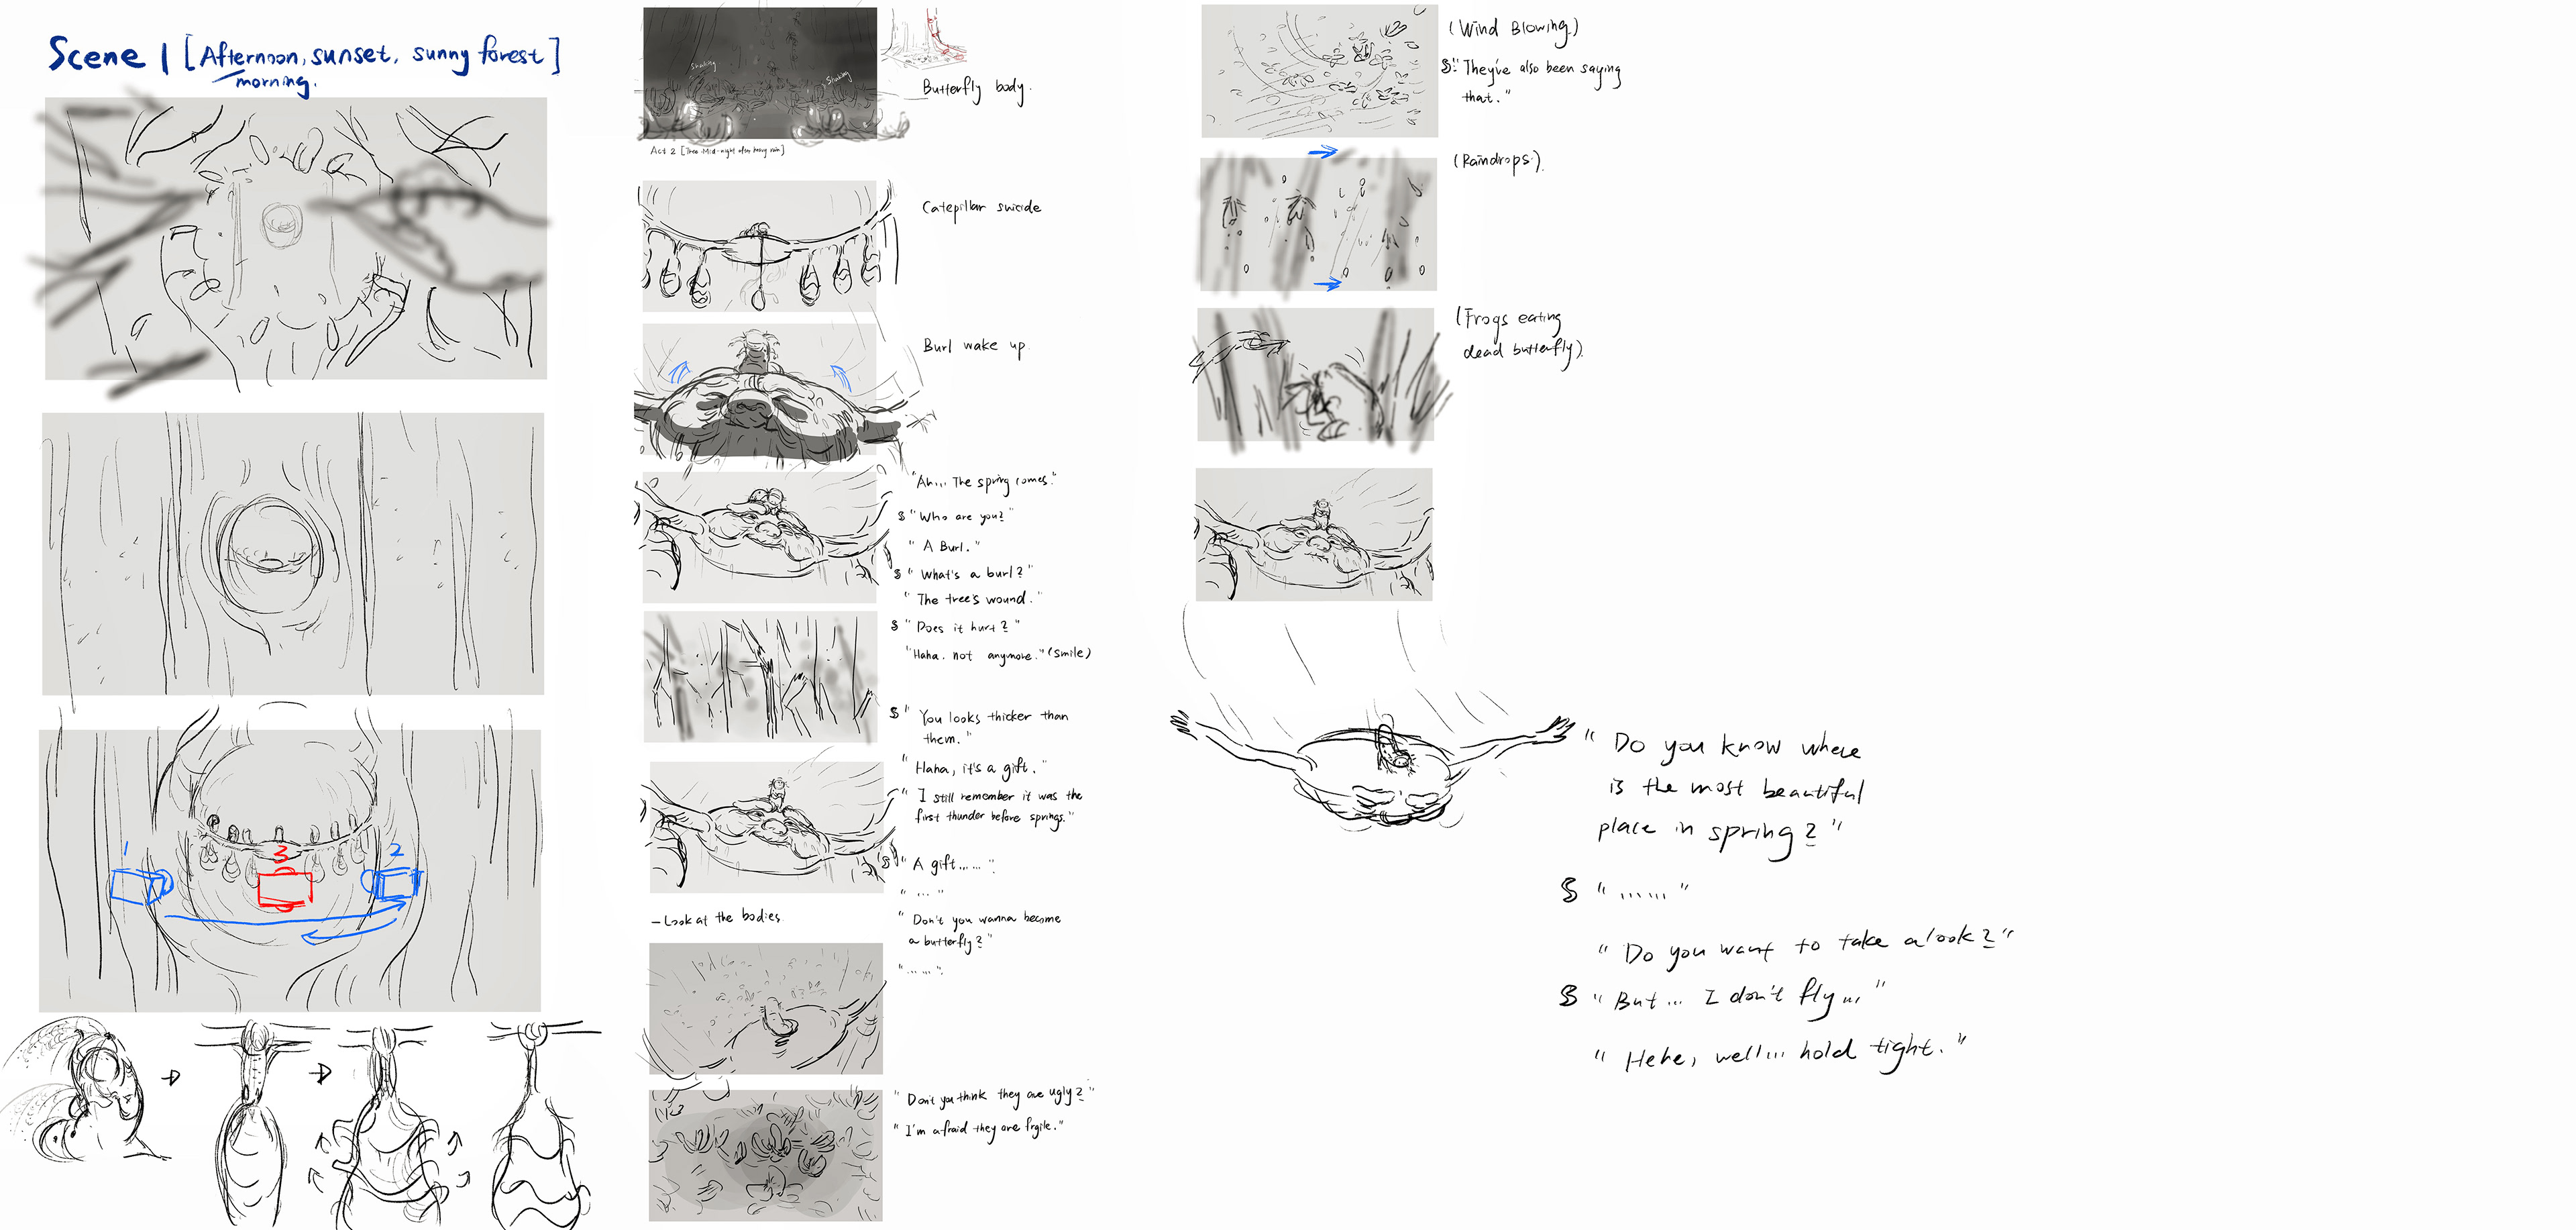 Scene 1 [Afternoon, sunset, sunny forest]
morning.
1
3
2
Shaking
Shaking
Butterfly body.
Act 2 [Tree. Mid-night after heavy rain]
Catepillar suicide
Burl wake up.
"Ah... The spring comes."
S "Who are you?"
"A Burl."
S "What's a burl?"
"The tree's wound."
S "Does it hurt?"
"Haha. not anymore." (smile)
S "You looks thicker than
them."
"Haha, it's a gift."
"I still remember it was the
first thunder before springs."
S "A gift......"
"..."
- Look at the bodies
"Don't you wanna become
a butterfly?"
"......"
"Don't you think they are ugly?"
"I'm afraid they are frgile."
(Wind Blowing)
S: "They've also been saying
that."
(Raindrops).
(Frogs eating
dead butterfly).
"Do you know where
is the most beautiful
place in spring?"
S "......"
"Do you want to take a look?"
S "But... I don't fly..."
"Hehe, well... hold tight."